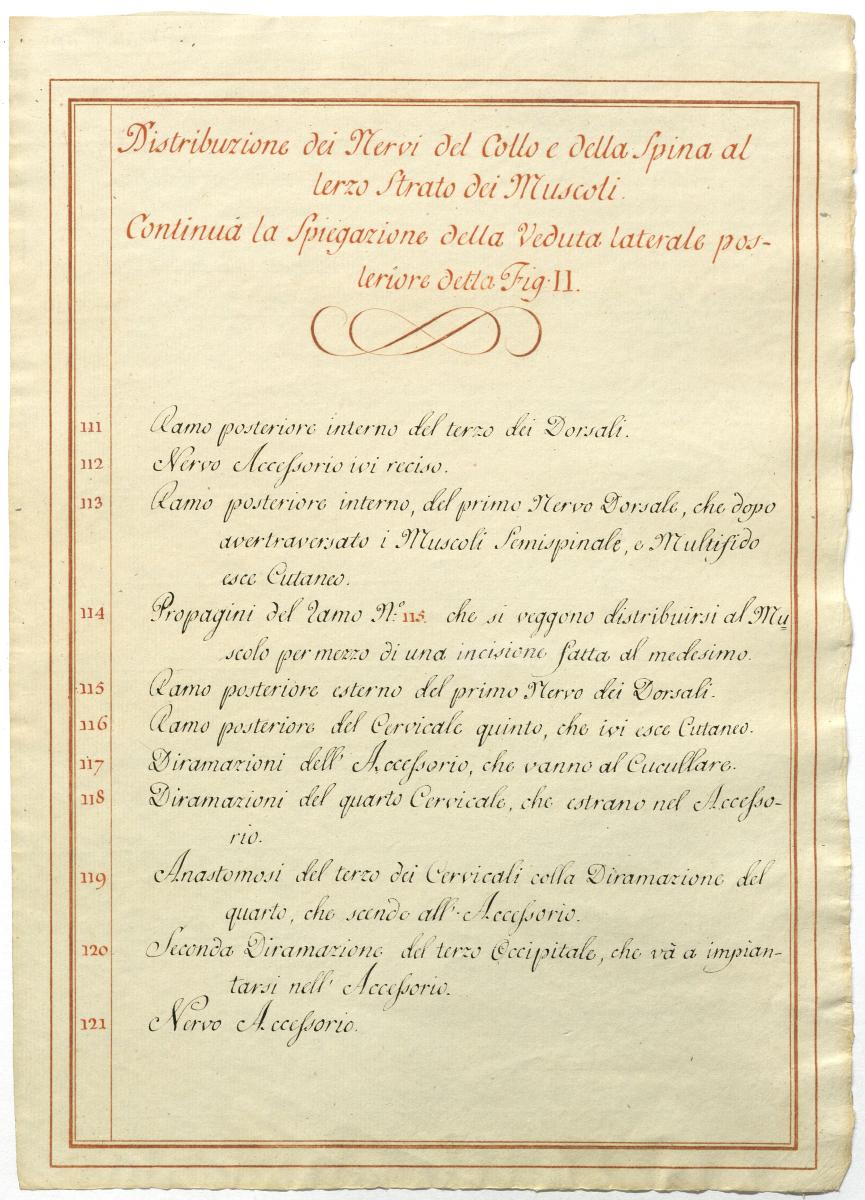 Distribuzione dei Nervi del Collo e della Spina al
terzo Strato dei Muscoli.
Continuá la Spiegazione della Veduta laterale pos-
teriore detta Fig. II.
111 Ramo posteriore interno del terzo dei Dorsali.
112 Nervo Accessorio ivi reciso.
113 Ramo posteriore interno, del primo Nervo Dorsale, che dopo
avertraversato i Muscoli Semispinale, e Multifido
esce Cutaneo.
114 Propagini del ramo N.º 115. che si veggono distribuirsi al Mu=
scolo per mezzo di una incisione fatta al medesimo.
115 Ramo posteriore esterno del primo Nervo dei Dorsali.
116 Ramo posteriore del Cervicale quinto, che ivi esce Cutaneo.
117 Diramazioni dell' Accessorio, che vanno al Cucullare.
118 Diramazioni del quarto Cervicale, che estrano nel Accesso-
rio.
119 Anastomosi del terzo dei Cervicali colla Diramazione del
quarto, che scende all' Accessorio.
120 Seconda Diramazione del terzo Occipitale, che và a impian-
tarsi nell' Accessorio.
121 Nervo Accessorio.